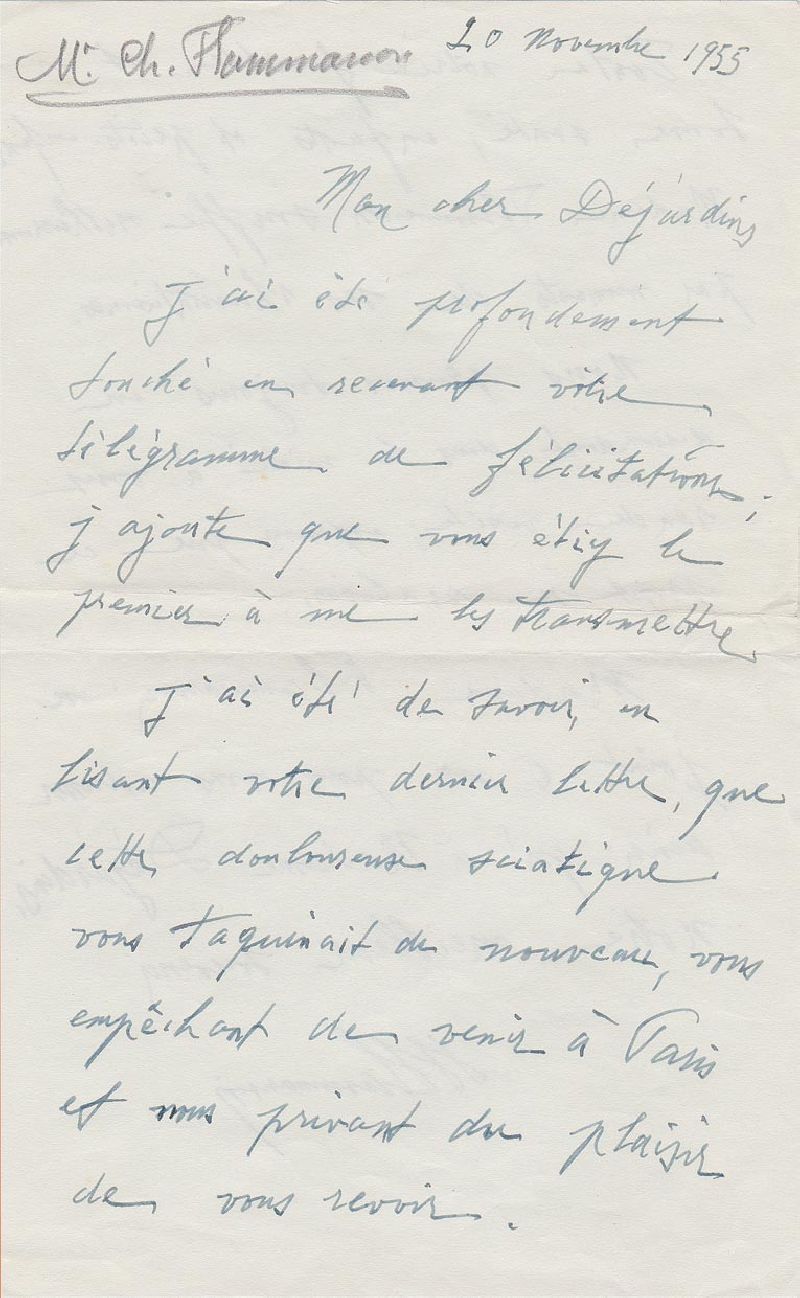 Mr. Ch. Flammarion
20 Novembre 1955
Mon cher Déjardins
J'ai été profondement
touché en recevant votre
télégramme de félicitations;
j'ajoute que vous étiez le
premier à me les transmettre.
J'ai été de savoir, en
lisant votre dernier lettre, que
cette douloureuse sciatique
vous taquinait de nouveau, vous
empêchant de venir à Paris
et nous privant du plaisir
de vous revoir.